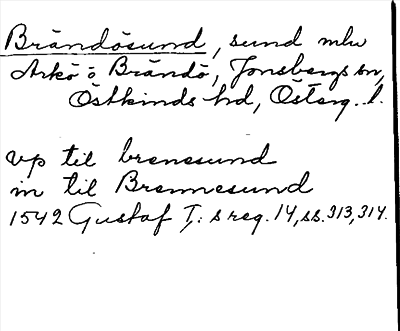 Brändösund, sund mlw
Arkö o Brändö, Jonsbergs sn,
Östkinds hd, Östерg. l.
vp til brenesund
in til Brennesund
1542 Gustaf I:s reg. 14, ss. 313, 314.